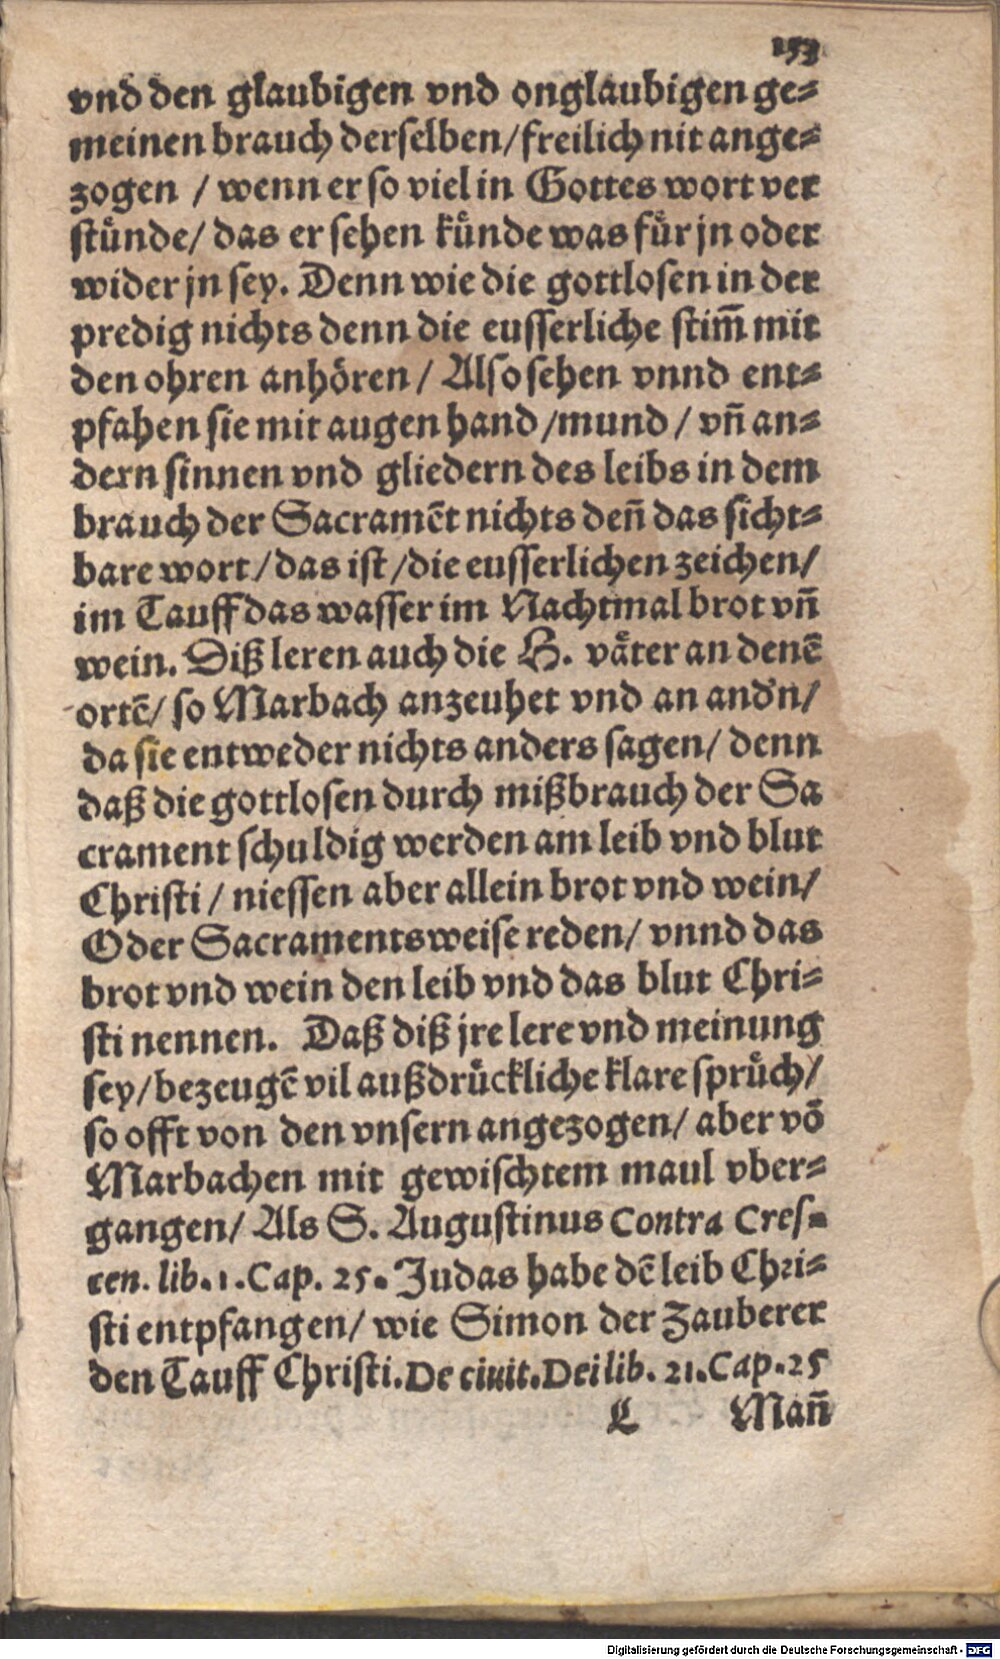 153
vnd den glaubigen vnd onglaubigen ge-
meinen brauch derselben/freilich nit ange-
zogen / wenn er so viel in Gottes wort ver
stuͤnde/ das er sehen kuͤnde was fuͤr jn oder
wider jn sey. Denn wie die gottlosen in der
predig nichts denn die eusserliche stim̃ mit
den ohren anhoͤren / Also sehen vnnd ent-
pfahen sie mit augen hand /mund / vñ an-
dern sinnen vnd gliedern des leibs in dem
brauch der Sacramẽt nichts deñ das sicht-
bare wort/das ist/die eusserlichen zeichen/
im Tauff das wasser im Nachtmal brot vñ
wein. Diß leren auch die H. vaͤter an denẽ
ortẽ/ so Marbach anzeuhet vnd an andn/
da sie entweder nichts anders sagen/ denn
daß die gottlosen durch mißbrauch der Sa
crament schuldig werden am leib vnd blut
Christi / niessen aber allein brot vnd wein/
Oder Sacramentsweise reden/ vnnd das
brot vnd wein den leib vnd das blut Chri-
sti nennen. Daß diß jre lere vnd meinung
sey/bezeugẽ vil außdruͤckliche klare spruͤch/
so offt von den vnsern angezogen/ aber võ
Marbachen mit gewischtem maul vber-
gangen/ Als S. Augustinus Contra Cres-
cen. lib. 1. Cap. 25. Judas habe dẽ leib Chri-
sti entpfangen/ wie Simon der Zauberer
den Tauff Christi. De ciuit. Dei lib. 21. Cap. 25
L Mañ
Digitalisierung gefördert durch die Deutsche Forschungsgemeinschaft - DFG